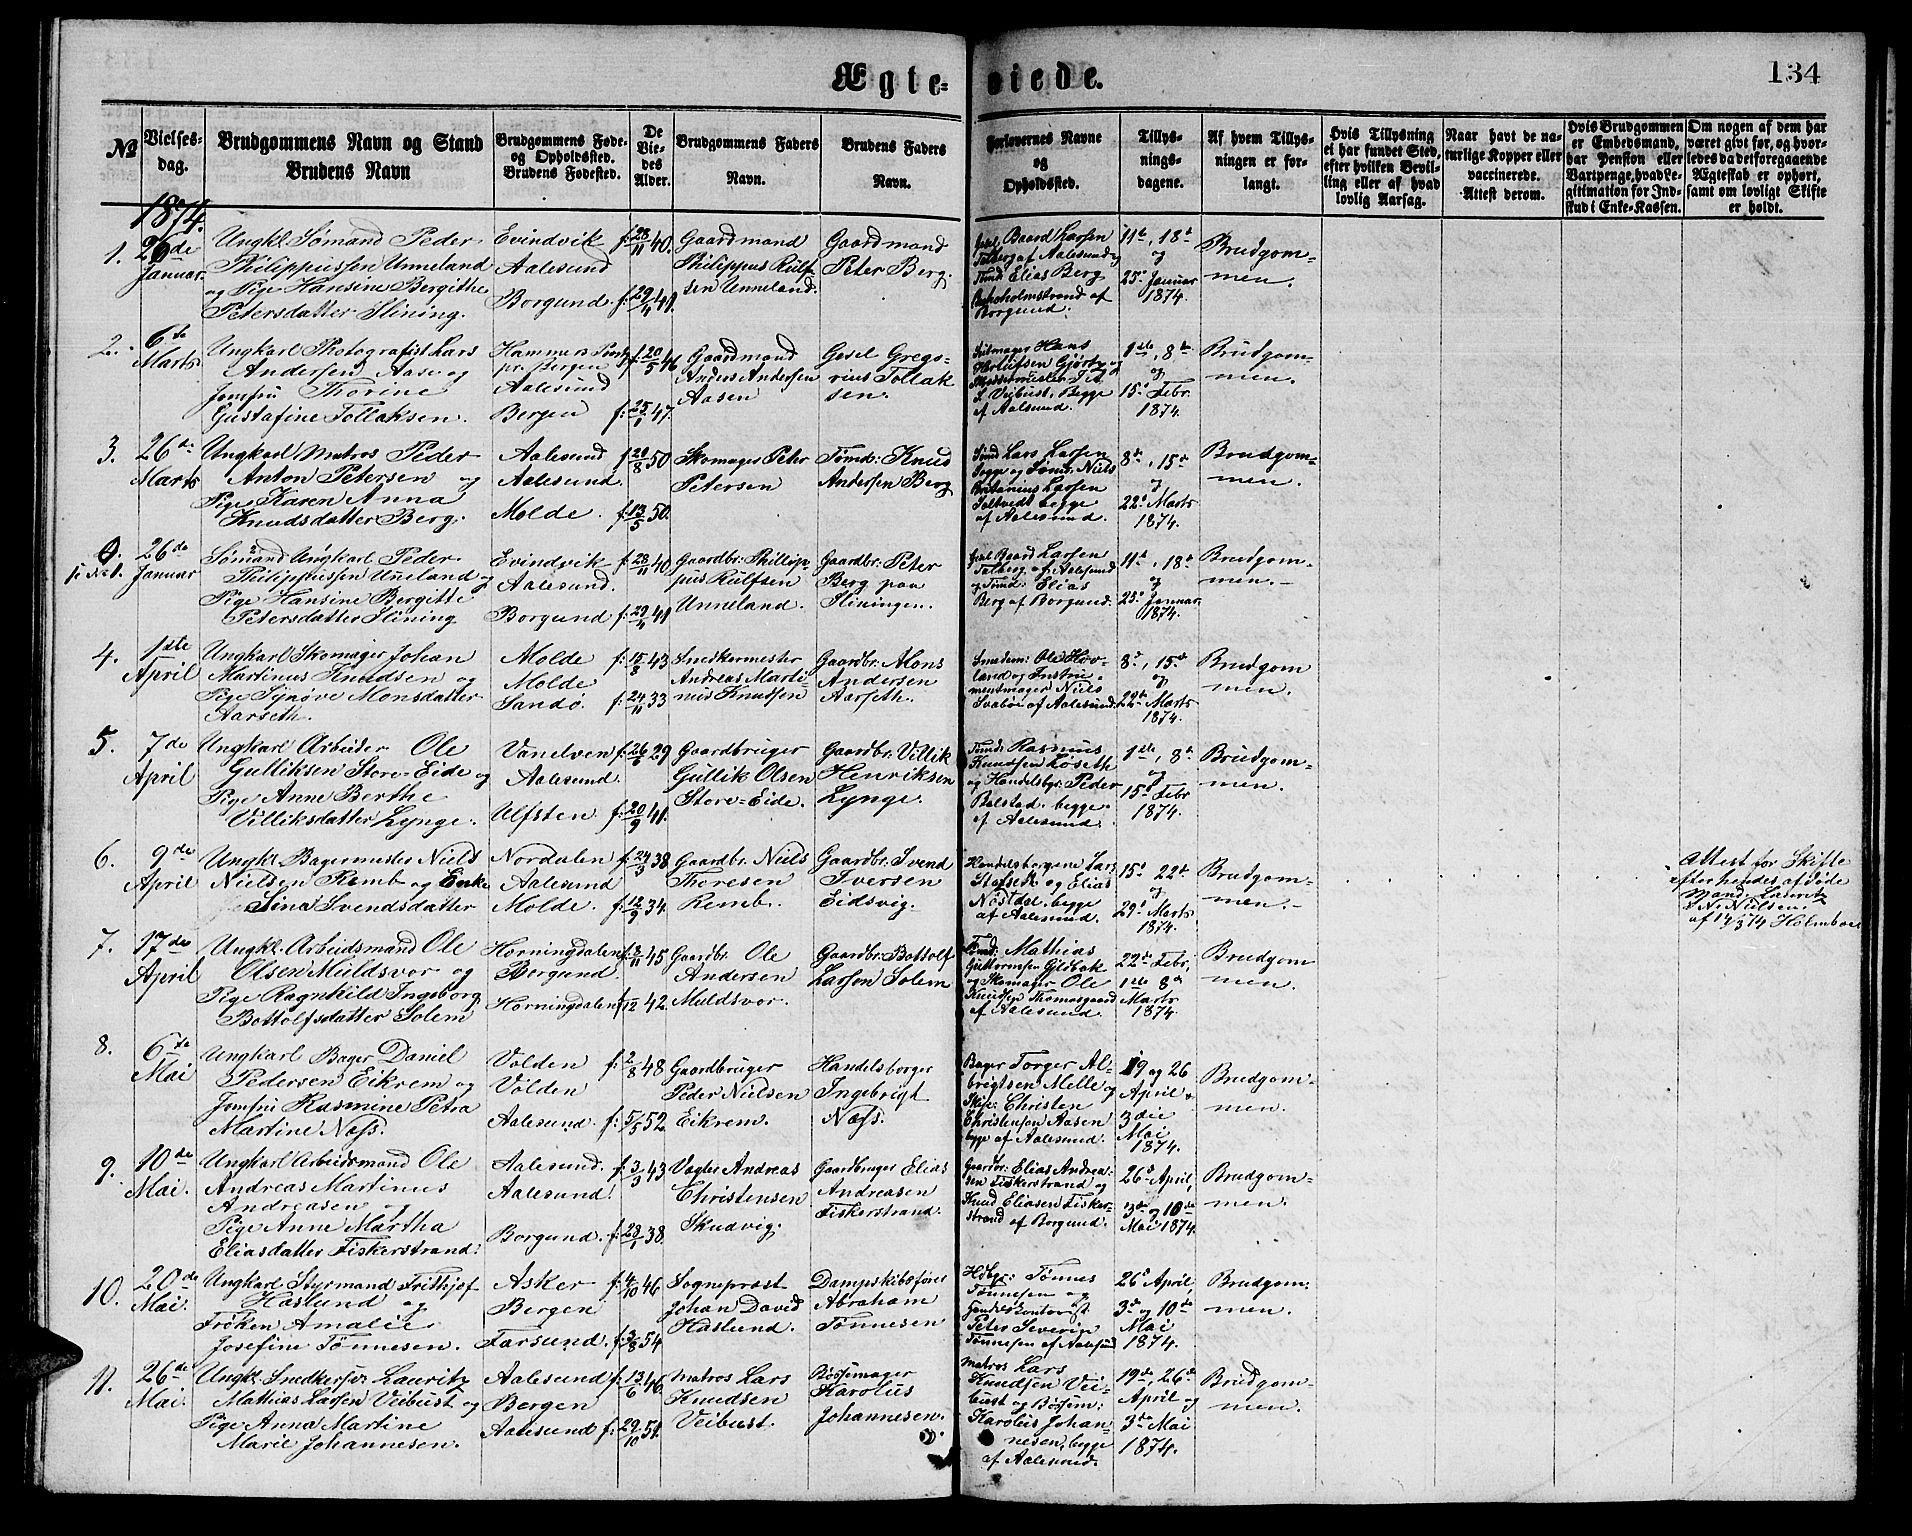 Ægteviede.
134
№
Vielses-
dag.
Brudgommens Navn og Stand
Brudens Navn
Brudgommens Føde-
og Opholdssted.
Brudens Fødested.
De
Vie-
des
Alder.
Brudgommens Faders
Navn.
Brudens Faders
Navn.
Forlovernes Navne
og
Opholdssted.
Tillys-
nings-
dagene.
Af hvem Tillys-
ningen er for-
langt.
Hvis Tillysning
ei har fundet Sted,
efter hvilken Bevil-
ling eller af hvad
lovlig Aarsag.
Naar havt de na-
turlige Kopper eller
vaccinerede.
Attest derom.
Hvis Brudgommen
er Embedsmand,
har Pension eller
Vartpenge, hvad Le-
gitimation for Ind-
skud i Enke-Kassen.
Om nogen af dem har
været givt før, og hvor-
ledes da det foregaaende
Ægteskab er ophørt,
samt om lovligt Skifte
er holdt.
1874.
1.
26de
Januar.
Ungkl. Sømand Peder
Philippussen Unneland
og Pige Hansine Bergithe
Petersdatter Slining.
Evindvik
Aalesund
Borgund.
f. 28/11 40.
f. 29/11 41.
Gaardmand
Philippus Rulf-
sen Unneland.
Gaardmand
Peter Berg.
Baard Larsen
Talberg af Aalesund og
Tømd. Elias Berg
af
Borgund.
11te, 18de
og
25de Januar
1874.
Brudgom-
men.
2.
6te
Marts
Ungkarl Photografist Lars
Andersen Aasen og
Jomfru Thorine
Gustafine Tollaksen.
Hammers Præst
pr. Bergen
Aalesund
Bergen
f. 20/5 46
f. 25/1 47.
Gaardmand
Anders Andersen
Aasen
Gesel Grego-
rius Tollak
sen.
Hans
og
Veibust, Begge
af Aalesund.
1ste, 8de
og
15de Febr.
1874.
Brudgom-
men.
3.
26de
Marts
Ungkarl Matros Peder
Anton Petersen og
Pige Karen Anna
Knudsdatter Berg.
Aalesund
Aalesund.
Molde.
f. 20/8 50
f. 13/5 50.
Skomager Peter
Petersen
Tømd: Knud
Andersen Berg
Lars Larsen
og Tømd. Niels
Britanius Larsen
begge
af Aalesund.
8de, 15de
og
22de Marts
1874.
Brudgom-
men.
0.
se No 1.
26de
Januar
Sømand Ungkarl Peder
Philippussen Uneland og
Pige Hansine Bergitte
Petersdatter Slining
Evindvik
Aalesund.
Borgund
f. 28/11 40
f. 29/11 41
Gaardbr. Phillip-
pus Rulfsen
Unneland.
Gaardbr: Peter
Berg paa
Sliningen.
Gesel Baard Larsen
Talberg af Aalesund
og Tømd: Elias
Berg af Borgund.
11te, 18de
og
25de Januar
1874.
Brudgom-
men.
4.
1ste
April
Ungkarl Skomager Johan
Martinus Knudsen og
Pige Synøve Monsdatter
Aarseth.
Molde
Molde
Sandø.
f. 15/8 43
f. 24/11 33
Snedkermester
Andreas Marti-
nus Knudsen
Gaardbr. Mons
Andersen
Aarseth.
Smedem: Ole Hov-
land og Instru-
mentmager Niels
Svabøe af Aalesund.
8de, 15de
og
22de Marts
1874.
Brudgom
men.
5.
7de
April
Ungkarl Arbeider Ole
Gulliksen Store-Eide og
Pige Anne Berthe
Villiksdatter Lynge.
Vanelven
Aalesund.
Ulfsten
f. 26/6 29
f. 20/9 41.
Gaardbruger
Gullik Olsen
Store-Eide.
Gaardbr. Villik
Henriksen
Lynge.
Tømd. Rasmus
Knudsen Løseth
og Handelsbgr. Peder
Bolstad. begge
af Aalesund.
1ste, 8de
og
15de Febr
1874.
Brudgom-
men.
6.
9de
April
Ungkl. Bagermester Niels
Nielsen Remb og Enke
Sina Svendsdatter
Nordalen
Aalesund
Molde.
f. 24/3 38
f. 12/9 34.
Gaardbr. Niels
Thoresen
Remb.
Gaardbr. Svend
Iversen
Eidsvig.
Handelsborgerne Lars
Stafseth og Elias
Nøstdal, begge
af Aalesund.
15de 22de
og
29de Marts
1874.
Brudgom-
men.
Attest for Skifte
efter hendes afdøde
Mand Lauritz
N. Nielsen.
af 14/3 74 Holmboe
7.
17de
April
Ungkl. Arbeidsmand Ole
Olsen Muldsvor og
Pige Ragnhild Ingeborg
Bottolfsdatter Solem
Horningdalen
Borgund.
Horningdalen
f. 8/11 45
f. 1/12 42.
Gaardbr. Ole
Andersen
Muldsvor.
Gaardbr. Bottolf
Larsen Solem
Tømd: Mathias
Guttormsen
og Skomager Ole
Knudsen Thomasgaard
af Aalesund.
22de Febr,
1ste 8de
Marts
1874.
Brudgom
men.
8.
6te
Mai
Ungkarl Bager Daniel
Pedersen Eikrem og
Jomfru Rasmine Petra
Martine Næss.
Volden
Volden
Aalesund
f. 2/8 48
f. 5/5 52.
Gaardbruger
Peder Nielsen
Eikrem.
Handelsborger
Ingebrigt
Næss.
Bager Torger Al-
brigtsen Melle og
Christen
Christensen Aasen
begge af Aalesund.
19 og 26
April &
3die
Mai
1874.
Brudgom-
men.
9.
10de
Mai.
Ungkarl Arbeidsmand Ole
Andreas Martinus
Andreasen og
Pige Anne Martha
Eliasdatter Fiskerstrand.
Aalesund.
Aalesund.
Borgund.
f. 3/3 43
f. 28/1 38.
Vægter Andreas
Christensen
Skudvig.
Gaardbruger Elias
Andreasen
Fiskerstrand.
Gaardbr: Elias Andrea-
sen Fiskerstrand og
Knud Eliasen Fisker-
strand af Borgund.
26de April,
3de og 10de
Mai 1874.
Brudgom-
men.
10.
20de
Mai.
Ungkarl Styrmand Frithjof
Haslund og
Frøken Amalie
Josefine Tønnesen.
Asker
Bergen
Farsund.
f. 4/10 46
f. 3/8 54
Sogneprest
Johan David
Haslund.
Dampskibsfører
Abraham
Tønnesen
Hdbgr: Tønnes
Tønnesen og
Handelskontorist
Peter Severin
Tønnesen af Aalesund
26de April,
3de og 10de
Mai
1874.
Brudgom-
men.
11.
26de
Mai.
Ungkl. Snedkersv: Lauritz
Mathias Larsen Veibust og
Pige Anna Martine
Marie Johannesen.
Aalesund
Bergen
Aalesund
f. 13/6 46
f. 29/10 51.
Matros Lars
Knudsen
Veibust.
Bøssemager
Karolus
Johannesen.
Matros Lars
Knudsen Vei-
bust og Bøssem:
Karolus Johan-
nesen, begge
af Aalesund.
19de, 26de
April og
3de Mai
1874.
Brudgom-
men.